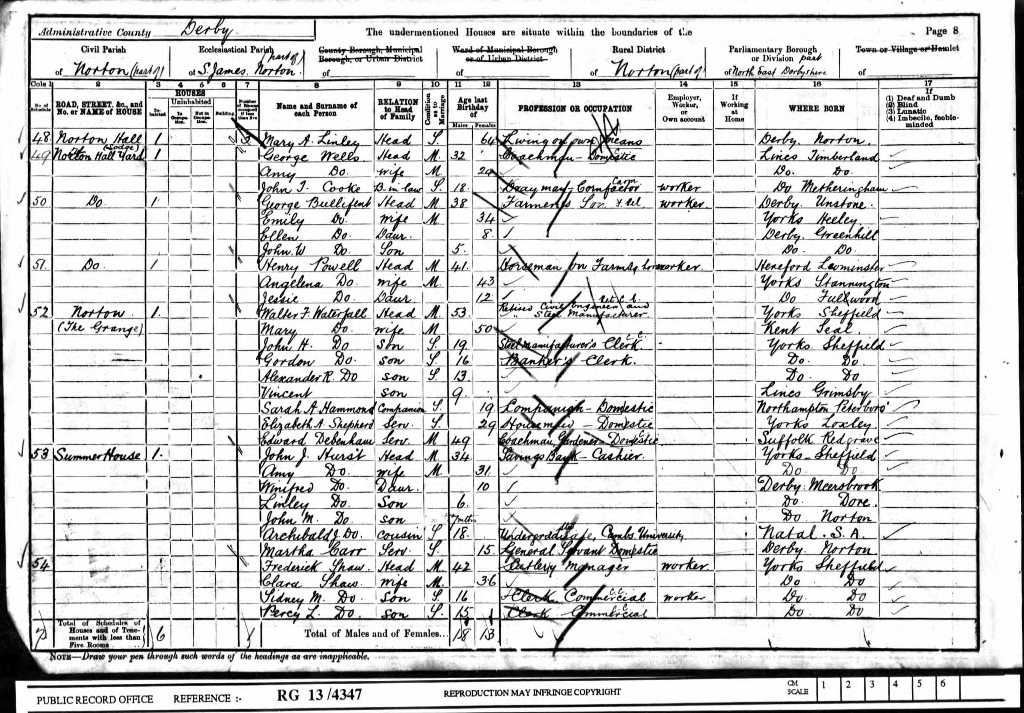 Administrative County Derby The undermentioned Houses are situate within the boundaries of the Page 8
Civil Parish Ecclesiastical Parish County Borough, Municipal Borough, or Urban District Ward of Municipal Borough or of Urban District Rural District Parliamentary Borough or Division Town or Village or Hamlet
of Norton (part of) of S. James, Norton part of of of of Norton (part of) of North East Derbyshire part of
Cols 1 2 3 4 5 6 7 8 9 10 11 12 13 14 15 16 17
No. of Schedule ROAD, STREET, &c., and No. or NAME of HOUSE HOUSES Inhabited Uninhabited In Occupation Not in Occupation Building Name and Surname of each Person RELATION to Head of Family Condition as to Marriage Age last Birthday of Males Females PROFESSION OR OCCUPATION Employer, Worker, or Own account If Working at Home WHERE BORN If (1) Deaf and Dumb (2) Blind (3) Lunatic (4) Imbecile, feeble-minded
48 Norton Hall (Lodge) 1 2 Mary A. Linley Head S. 64 Living on own means Derby Norton
49 Norton Hall Yard 1 George Wells Head M 32 Coachman - Domestic Lincs Timberland
Amy Do. wife M 29 Do. Do.
John T. Cooke B.in law S. 18 Drayman Corn factor worker Do Metheringham
50 Do 1 George Bullifent Head M 38 Farmers worker Derby Unstone
Emily Do. wife M 34 Yorks Heeley
Ellen Do. Daur. 8 Derby Greenhill
John W Do Son 5 Do. Do.
51 Do. 1 Henry Powell Head M 41 Horseman on Farm worker Hereford Leominster
Angelena Do wife M 43 Yorks Stannington
Jessie Do. Daur 12 Do Fullwood
52 Norton 1 Walter F. Waterfall Head M 53 Retired Civil Engineer and Steel Manufacturer Yorks Sheffield
(The Grange) Mary Do. wife M 50 Kent Seal
John H. Do Son S. 19 Steel manufacturer's Clerk Yorks Sheffield
Gordon Do. son S 16 Banker's Clerk Do. Do
Alexander R. Do son S. 13 Do. Do
Vincent son 9 Lincs Grimsby
Sarah A Hammond Companion S. 19 Companion - Domestic Northampton Peterboro'
Elizabeth A Shepherd Serv. S 29 Housemaid - Domestic Yorks Loxley
Edward Debenham Serv. M 49 Coachman Gardener - Domestic Suffolk Redgrave
53 Summer House 1 John J. Hurst Head M 34 Savings Bank - Cashier Yorks - Sheffield
Amy Do. wife M 31 Do Do
Winifred Do. Daur. 10 Derby Meersbrook
Linley Do Son 6 Do. Dore
John M. Do son 7 mths Do Norton
Archibald J. Do. cousin S 18 Undergraduate, Cambs. University Natal. S.A.
Martha Carr Serv. S. 15 General Servant Domestic Derby Norton
54 Frederick Shaw Head M 42 Cutlery Manager worker Yorks Sheffield
Clara Shaw wife M 36 Do Do
Sidney M. Do Son S 16 Clerk Commercial worker Do Do
Percy L. Do son S 15 Clerk Commercial Do Do
7 Total of Schedules of Houses and of Tenements with less than Five Rooms 6 1 Total of Males and of Females... 18 13
NOTE—Draw your pen through such words of the headings as are inapplicable.
PUBLIC RECORD OFFICE REFERENCE :- RG 13/4347 REPRODUCTION MAY INFRINGE COPYRIGHT CM SCALE 1 2 3 4 5 6